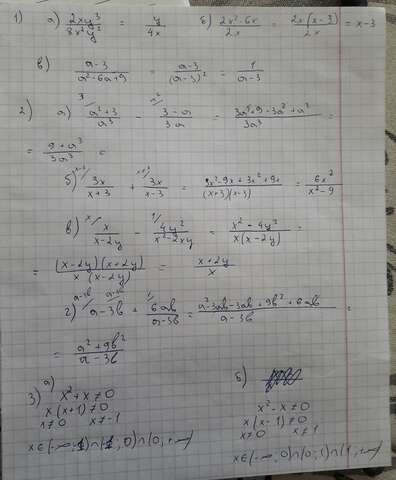 1) а) 2xy³/8x²y² = y/4x б) 2x²-6x/2x = 2x(x-3)/2x = x-3
в) a-3/a²-6a+9 = a-3/(a-3)² = 1/a-3
2) а) 3/ a²+3/a³ - a²/ 3-a/3a = 3a²+9-3a²+a³/3a³ =
= 9+a³/3a³ =
б) x-3/ 3x/x+3 + x+3/ 3x/x-3 = 3x²-9x+3x²+9x/(x+3)(x-3) = 6x²/x²-9
в) x/ x/x-2y - 1/ 4y²/x²-2xy = x²-4y²/x(x-2y) =
= (x-2y)(x+2y)/x(x-2y) = x+2y/x
г) a-3b/ a-3b + 1/ 6ab/a-3b = a²-3ab-3ab+9b²+6ab/a-3b =
= a²+9b²/a-3b
3) а) б)
x²+x≠0 x²-x≠0
x(x+1)≠0 x(x-1)≠0
x≠0 x≠-1 x≠0 x≠1
x∈(-∞;-1)∩(-1;0)∩(0;+∞)
x∈(-∞;0)∩(0;1)∩(1;+∞)